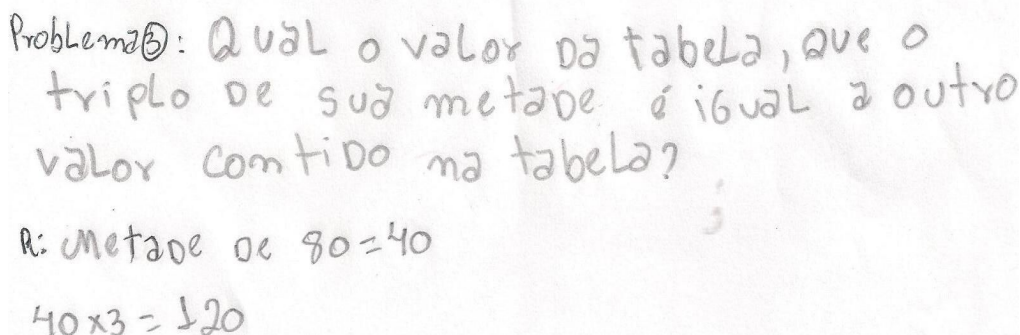 Problema③: Qual o valor da tabela, que o
triplo de sua metade é igual a outro
valor comtido na tabela?
R: Metade de 80=40
40x3=120